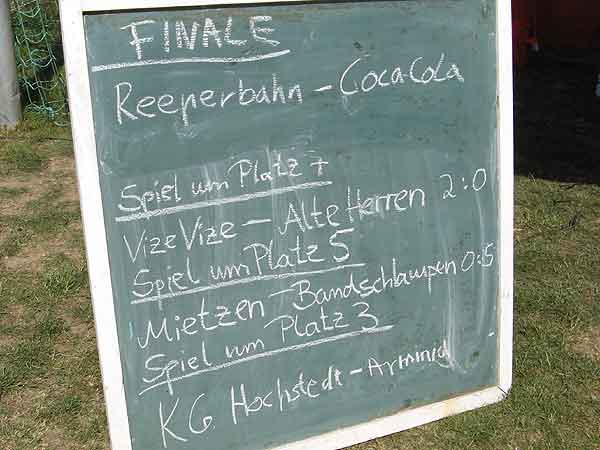 FINALE
Reeperbahn - Coca Cola
Spiel um Platz 7
Vize Vize - Alte Herren 2:0
Spiel um Platz 5
Mietzen - Bandschlampen 0:5
Spiel um Platz 3
KG Hochstedt - Arminia